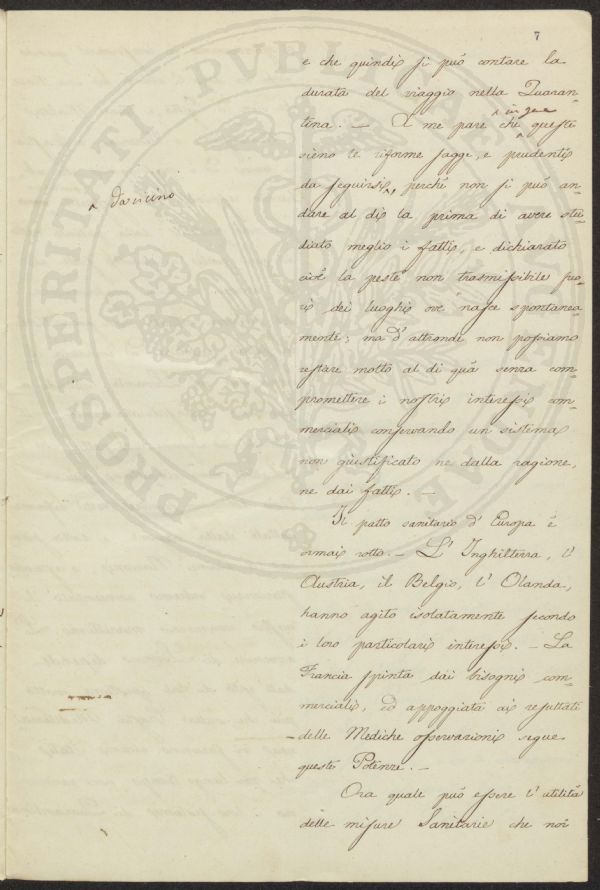 7
e che quindi si può contare la
durata del viaggio nella Quaran-
tina. — A me pare che queste
sieno le riforme sagge, e prudenti
da seguirsi, perchè non si può an-
^ da vicino
dare al di là prima di avere stu-
diato meglio i fatti, e dichiarato
cioè la peste non trasmissibile fuo-
ri dei luoghi ove nasce spontanea-
mente; ma d'altronde non possiamo
restare molto al di quà senza com-
promettere i nostri interessi com-
merciali conservando un sistema
non giustificato ne dalla ragione,
ne dai fatti. —
Il patto sanitario d'Europa è
ormai rotto. — L'Inghilterra, l'
Austria, il Belgio, l'Olanda,
hanno agito isolatamente secondo
i loro particolari interessi. — La
Francia spinta dai bisogni com-
merciali, ed appoggiata ai resultati
delle Mediche osservazioni segue
queste Potenze. —
Ora quale può essere l'utilità
delle misure Sanitarie che noi
PROSPERITATI PVBLICAE